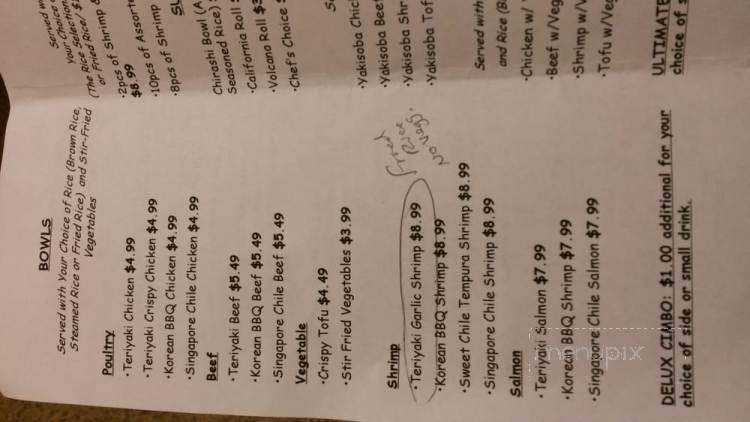 BOWLS
Served with Your Choice of Rice (Brown Rice,
Steamed Rice or Fried Rice) and Stir-Fried
Vegetables
Poultry
·Teriyaki Chicken $4.99
·Teriyaki Crispy Chicken $4.99
·Korean BBQ Chicken $4.99
·Singapore Chile Chicken $4.99
Beef
·Teriyaki Beef $5.49
·Korean BBQ Beef $5.49
·Singapore Chile Beef $5.49
Vegetable
·Crispy Tofu $4.49
·Stir Fried Vegetables $3.99
Shrimp
·Teriyaki Garlic Shrimp $8.99
Fried
Rice
No Veg.
·Korean BBQ Shrimp $8.99
·Sweet Chile Tempura Shrimp $8.99
·Singapore Chile Shrimp $8.99
Salmon
·Teriyaki Salmon $7.99
·Korean BBQ Shrimp $7.99
·Singapore Chile Salmon $7.99
DELUX CIMBO: $1.00 additional for your
choice of side or small drink.
Served w
Your Choice
The Rice Selection
(The Rice Rice/ $1
or Fried Rice &
·2pcs of Shrimp &
$8.99
·10pcs of Assorte
·8pcs of Shrimp
Chirashi Bowl (A
Seasoned Rice)
·California Roll
·Volcano Roll $3
·Chef's Choice
·Yakisoba Chic
·Yakisoba Beef
·Yakisoba Shr
·Yakisoba Tof
Served with
and Rice (B
·Chicken w/
·Beef w/Veg
·Shrimp w/V
·Tofu w/Veg
ULTIMATE
choice of s
menupix